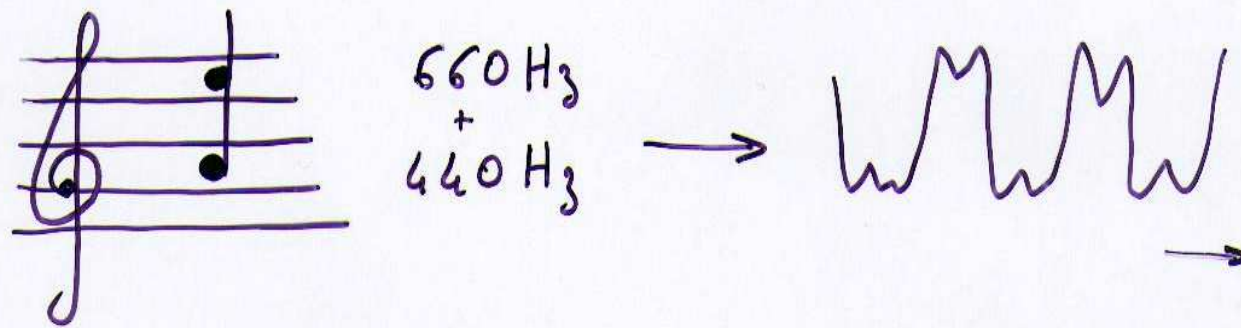 660 Hz
+
440 Hz